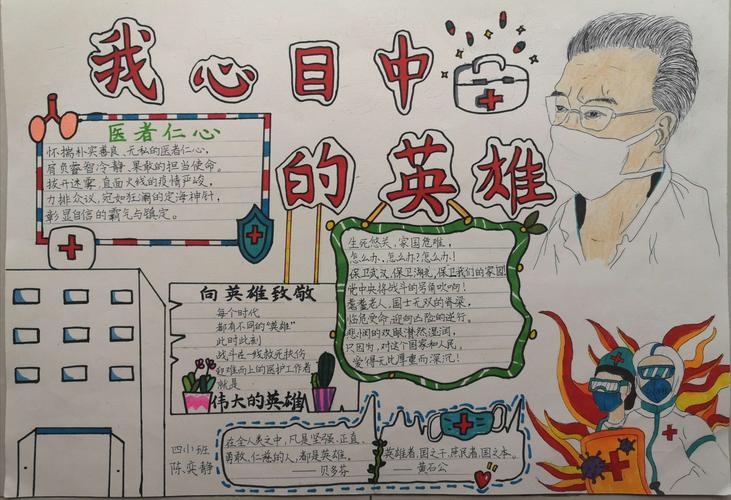 我心目中
的英雄
医者仁心
怀揣朴实善良、无私的医者仁心,
肩负睿智冷静、果敢的担当使命。
拨开迷雾,直面火线的疫情严峻,
力排众议,宛如狂澜的定海神针,
彰显自信的霸气与镇定。
生死悠关、家国危难,
怎么办、怎么办?怎么办!
保卫武汉、保卫湖北,保卫我们的家园
党中央将战斗的号角吹响!
耄耋老人,国士无双的脊梁,
临危受命,迎向凶险的逆行。
悲悯的双眼潸然湿润,
只因为,对这个国家和人民,
爱得无比厚重而深沉!
向英雄致敬
每个时代
都有不同的“英雄”
此时此刻
战斗在一线救死扶伤
和难而上的医护工作者
就是
伟大的英雄
四小班
陈奕静
在全人类之中,凡是坚强、正直、
勇敢、仁慈的人,都是英雄。
——贝多芬
英雄者,国之干,庶民者,国之本。
——黄石公